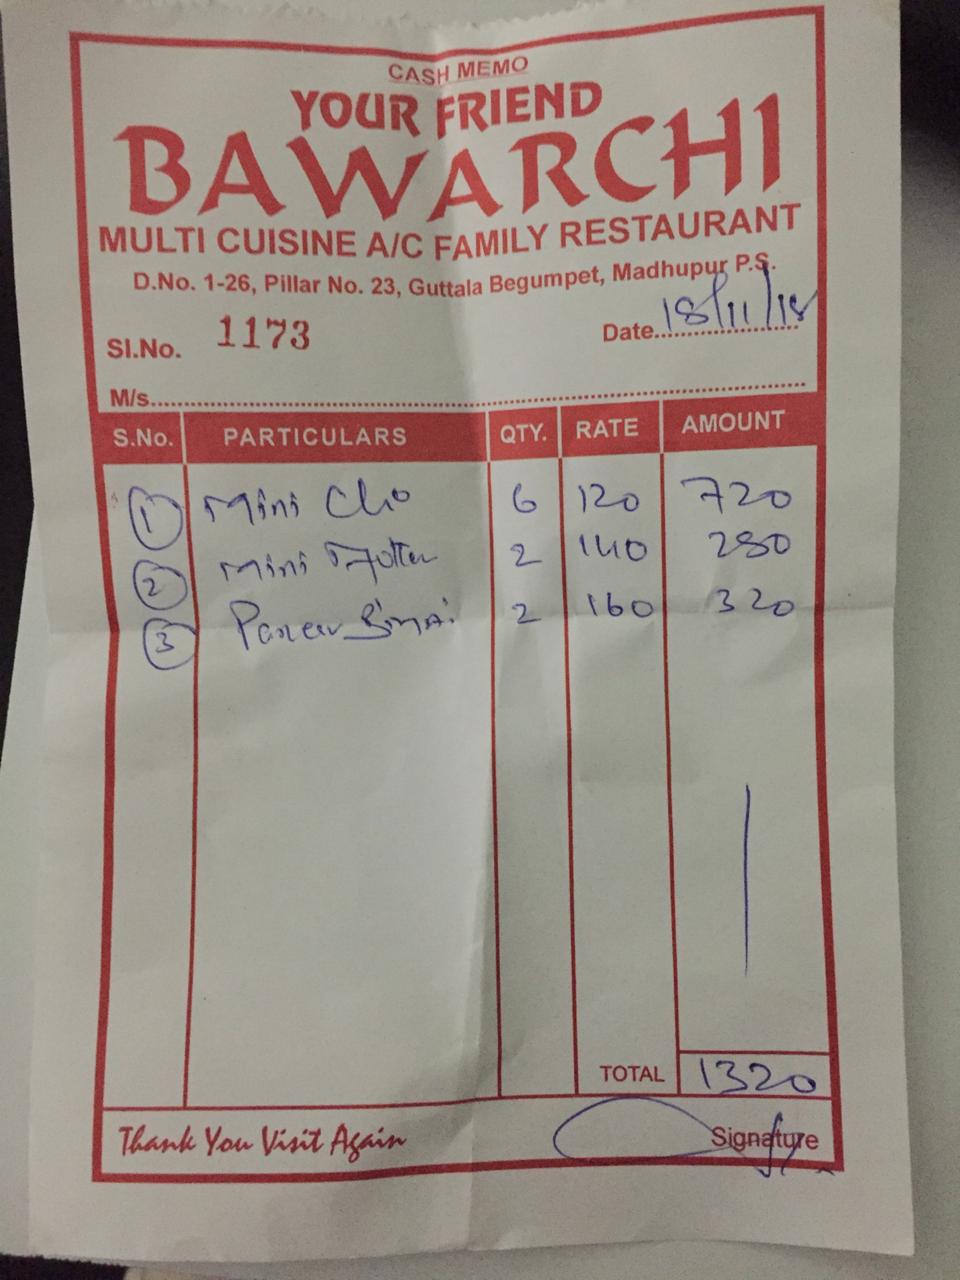 CASH MEMO
YOUR FRIEND
BAWARCHI
MULTI CUISINE A/C FAMILY RESTAURANT
D.No. 1-26, Pillar No. 23, Guttala Begumpet, Madhupur P.S.
Sl.No. 1173 Date 18/11/18
M/s.
S.No. PARTICULARS QTY. RATE AMOUNT
1 Mini 6 120 720
2 Mini 2 140 280
3 Paneer 2 160 320
TOTAL 1320
Thank You Visit Again Signature